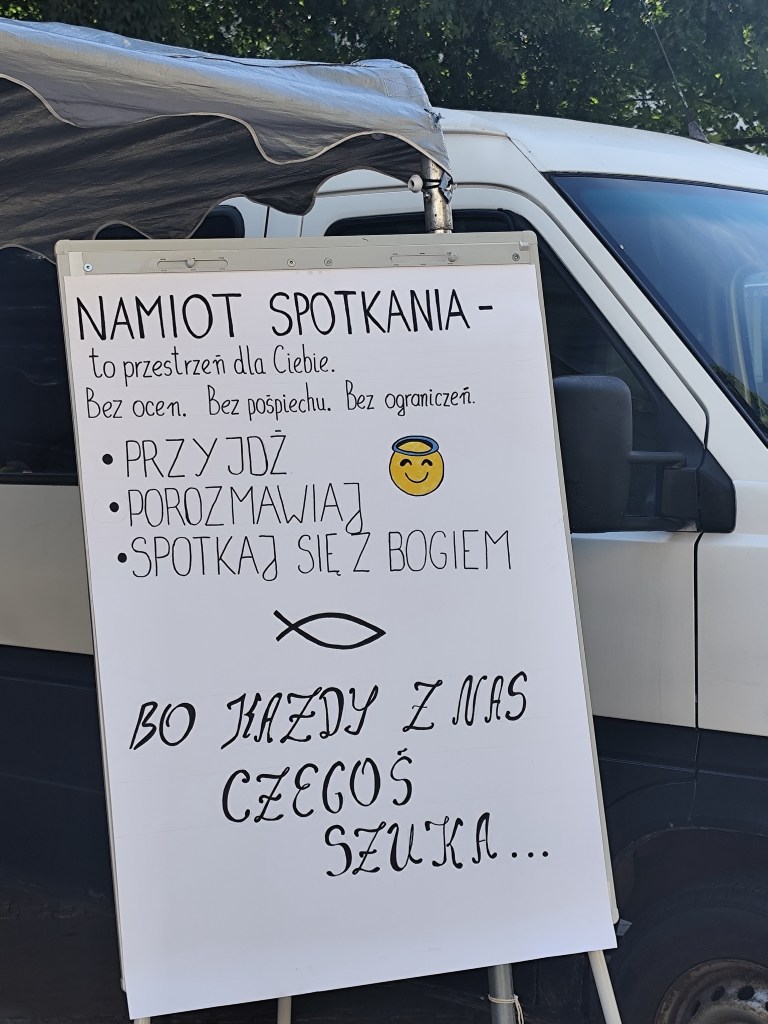 NAMIOT SPOTKANIA -
to przestrzeń dla Ciebie.
Bez ocen. Bez pośpiechu. Bez ograniczeń.
• PRZYJDŹ
• POROZMAWIAJ
• SPOTKAJ SIĘ Z BOGIEM
BO KAŻDY Z NAS
CZEGOŚ
SZUKA...